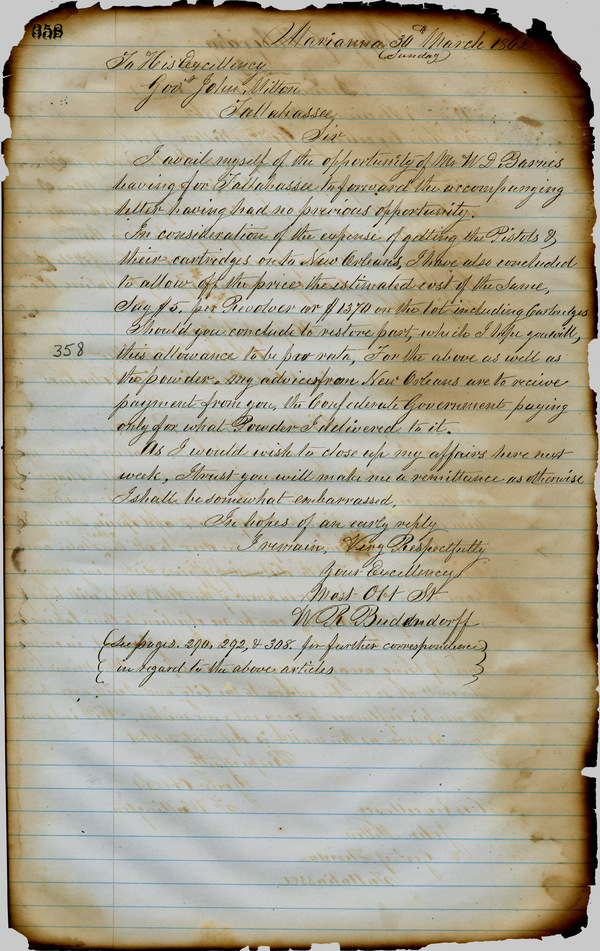 358
Marianna 30th March 1862
(Sunday)
To His Excellency
Govr John Milton
Tallahassee
Sir
I avail myself of the opportunity of Mr W D Barnes
leaving for Tallahassee to forward the accompanying
letter having had no previous opportunity.
In consideration of the expense of getting the Pistols &
their cartridges on to New Orleans, I have also concluded
to allow off the price the estimated cost of the same,
Say $5. per Revolver or $1370 on the lot including Cartridges
Should you conclude to restore part, which I hope you will,
358
this allowance to be pro rata, For the above as well as
the powder, my advices from New Orleans are to receive
payment from you, the Confederate Government paying
only for what Powder I delivered to it.
As I would wish to close up my affairs here next
week, I trust you will make me a remittance as otherwise
I shall be somewhat embarrassed.
In hopes of an early reply
I remain, Very Respectfully
Your Excellency's
Most Obt St
W R Budendorff
(See pages. 290, 292, & 308. for further correspondence
in regard to the above articles)